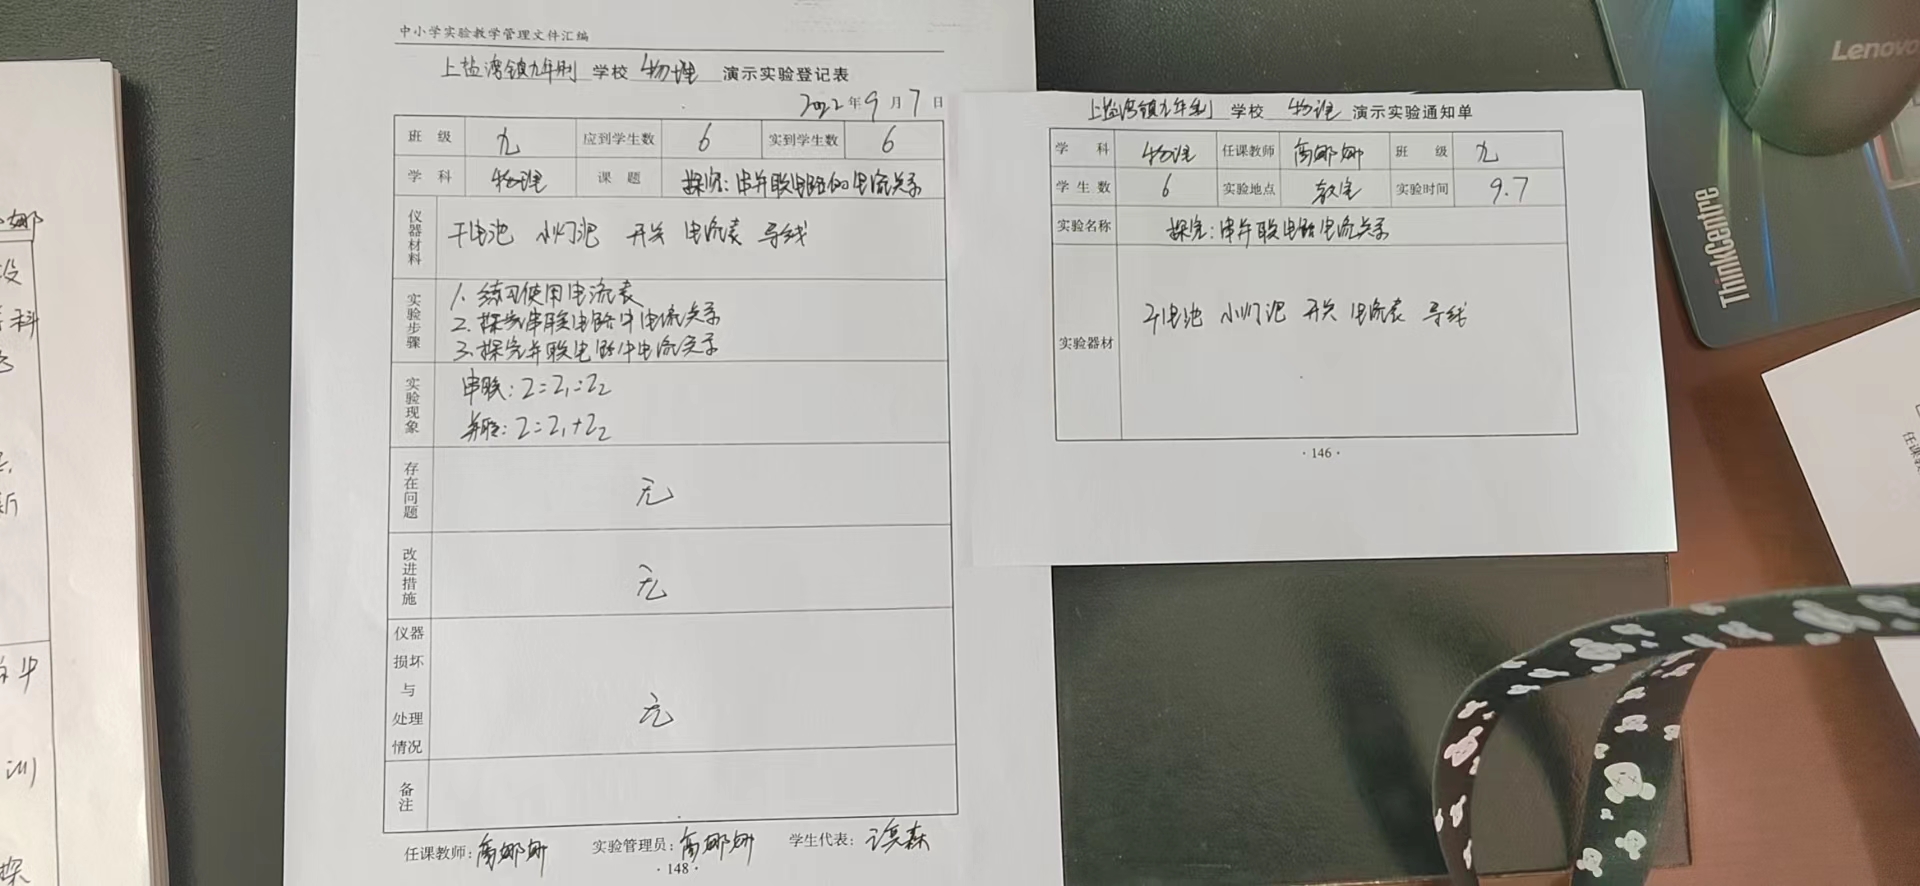 中小学实验教学管理文件汇编
上盐湾镇九年制 学校 物理 演示实验登记表
2022年9月7日
班级 九 应到学生数 6 实到学生数 6
学科 物理 课题 探究:串并联电路的电流关系
仪器材料 干电池 小灯泡 开关 电流表 导线
实验步骤
1. 练习使用电流表
2. 探究串联电路中电流关系
3. 探究并联电路中电流关系
实验现象
串联: I=I₁=I₂
并联: I=I₁+I₂
存在问题 无
改进措施 无
仪器损坏与处理情况 无
备注
任课教师: 高娜娜 实验管理员: 高娜娜 学生代表:
·148·
上盐湾镇九年制 学校 物理 演示实验通知单
学科 物理 任课教师 高娜娜 班级 九
学生数 6 实验地点 教室 实验时间 9.7
实验名称 探究:串并联电路电流关系
实验器材 干电池 小灯泡 开关 电流表 导线
·146·
Lenovo
ThinkCentre